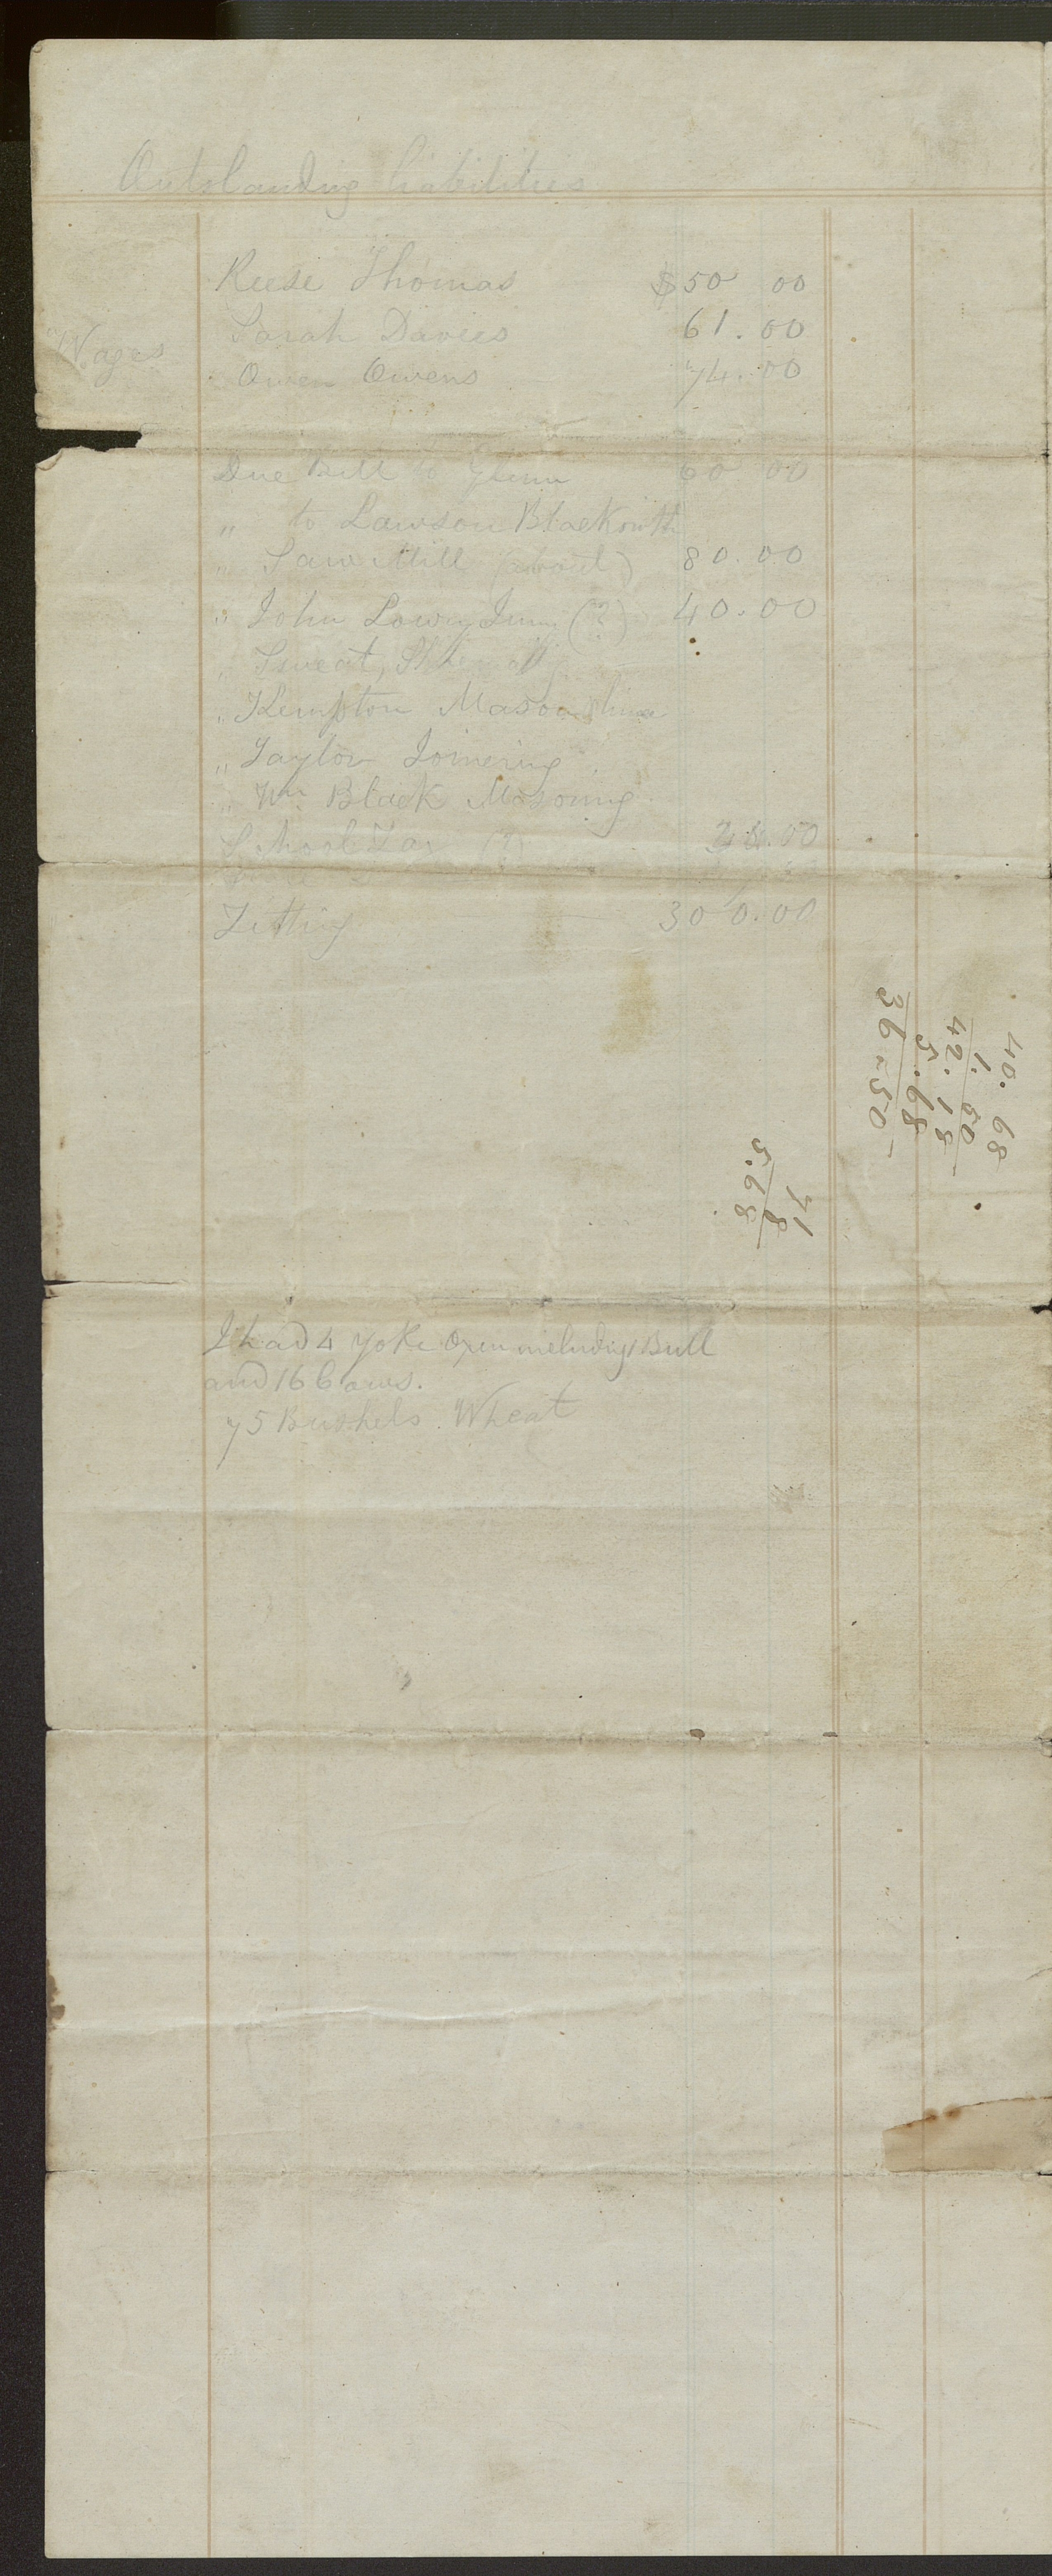 Outstanding liabilities
Reese Thomas $50 00
Sarah Davies 61.00
Wages
Owen Owens 74.00
Due Bill to Glenn 60 00
" to Lawson Blacksmith
" Saw Mill (about) 80.00
" John Lowry Junr (?) 40.00
" Sweat,
" Kempton Mason
" Taylor Joinering
" Wm Black Masoning
School Tax (?)
Tithing 300.00
40.68
1.50
42.18
5.68
36-50
71
8
5.68
I had 4 yoke Oxen including 1 Bull
and 16 Cows.
75 Bushels Wheat